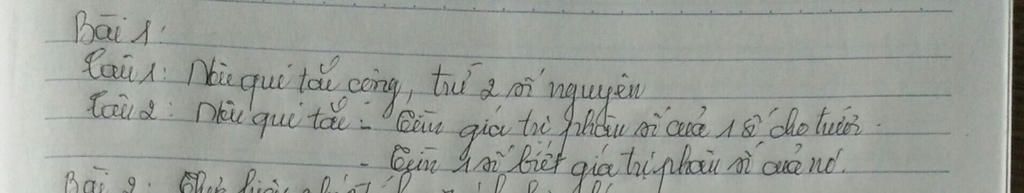 Bài 1:
Câu 1: Nêu qui tắc cộng, trừ 2 số nguyên
Câu 2: Nêu qui tắc - Tìm giá trị phân số của 1 số cho trước.
- Tìm 1 số biết giá trị phân số của nó.
Bài 2: